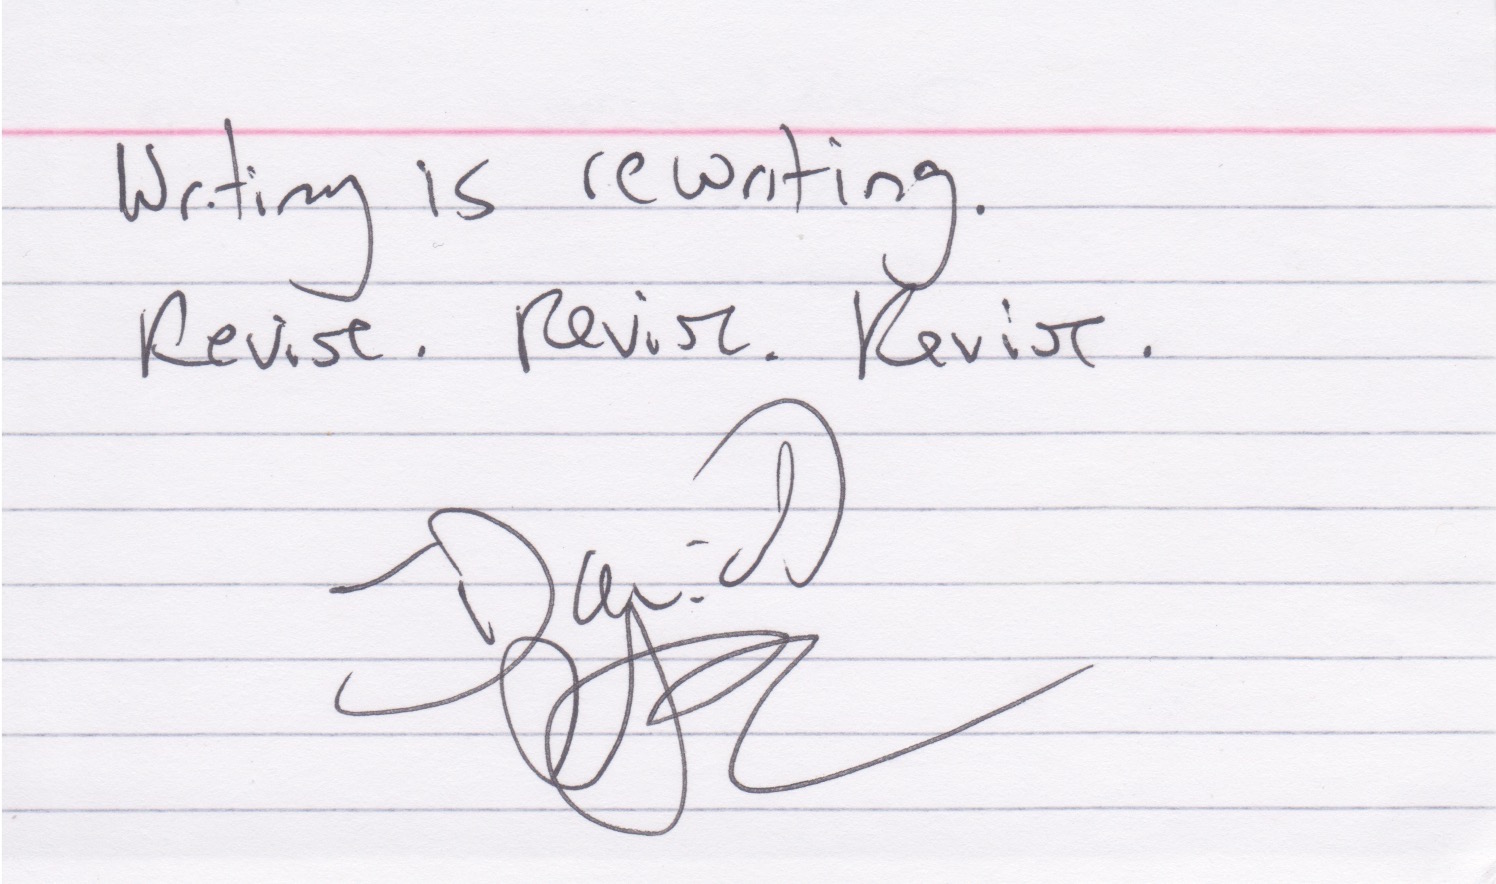 Writing is rewriting.
Revise. Revise. Revise.
David